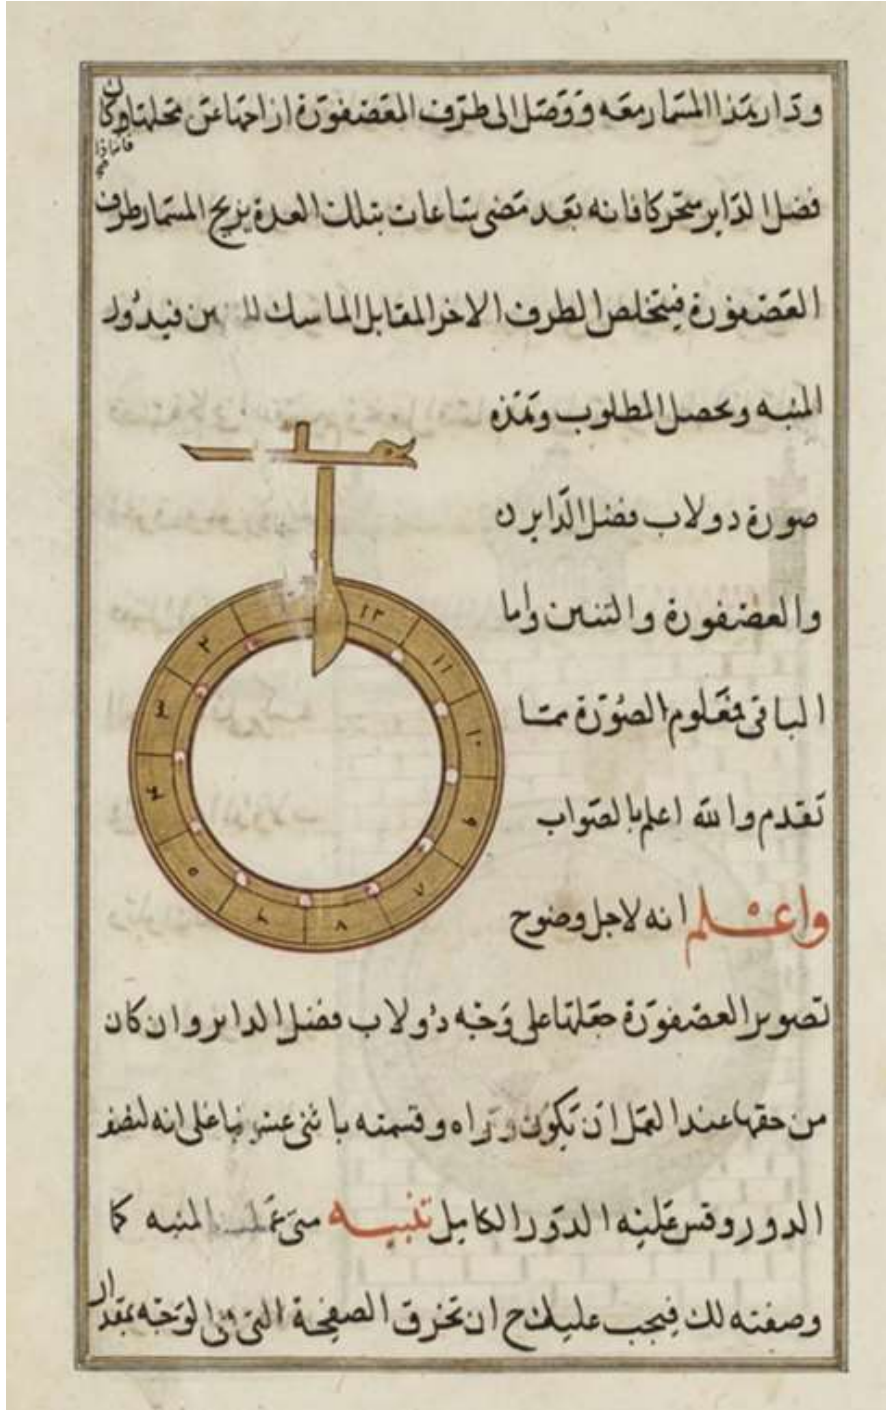 ودار بهذا المسمار معه ووصل الى طرف العصفورة ازاحها عن محلها وكان
فاذا
فضل الداير متحركا فانه بعد مضى ساعات بتلك العدة يزيح المسمار طرف
العصفورة فيتخلص الطرف الاخر المقابل الماسك للتنين فيدور
المنبه ويحصل المطلوب وهذه
صورة دولاب فضل الداير ن
والعصفورة والتنين واما
الباقى فمعلوم الصورة مما
تقدم والله اعلم بالصواب
واعلم انه لاجل وضوح
تصوير العصفورة جعلتها على وجه دولاب فضل الداير وان كان
من حقها عند العمل ان تكون وراه وقسمته باثنى عشر بناعلى انه لنصف
الدور وقس عليه الدور الكامل تنبيه متى عملت المنبه كما
وصفته لك فيجب عليك ح ان تخرق الصفيحة التى فى الوجه بمقدار
١٢
١١
١٠
٩
٧
٨
٦
٥
٤
٣
٢